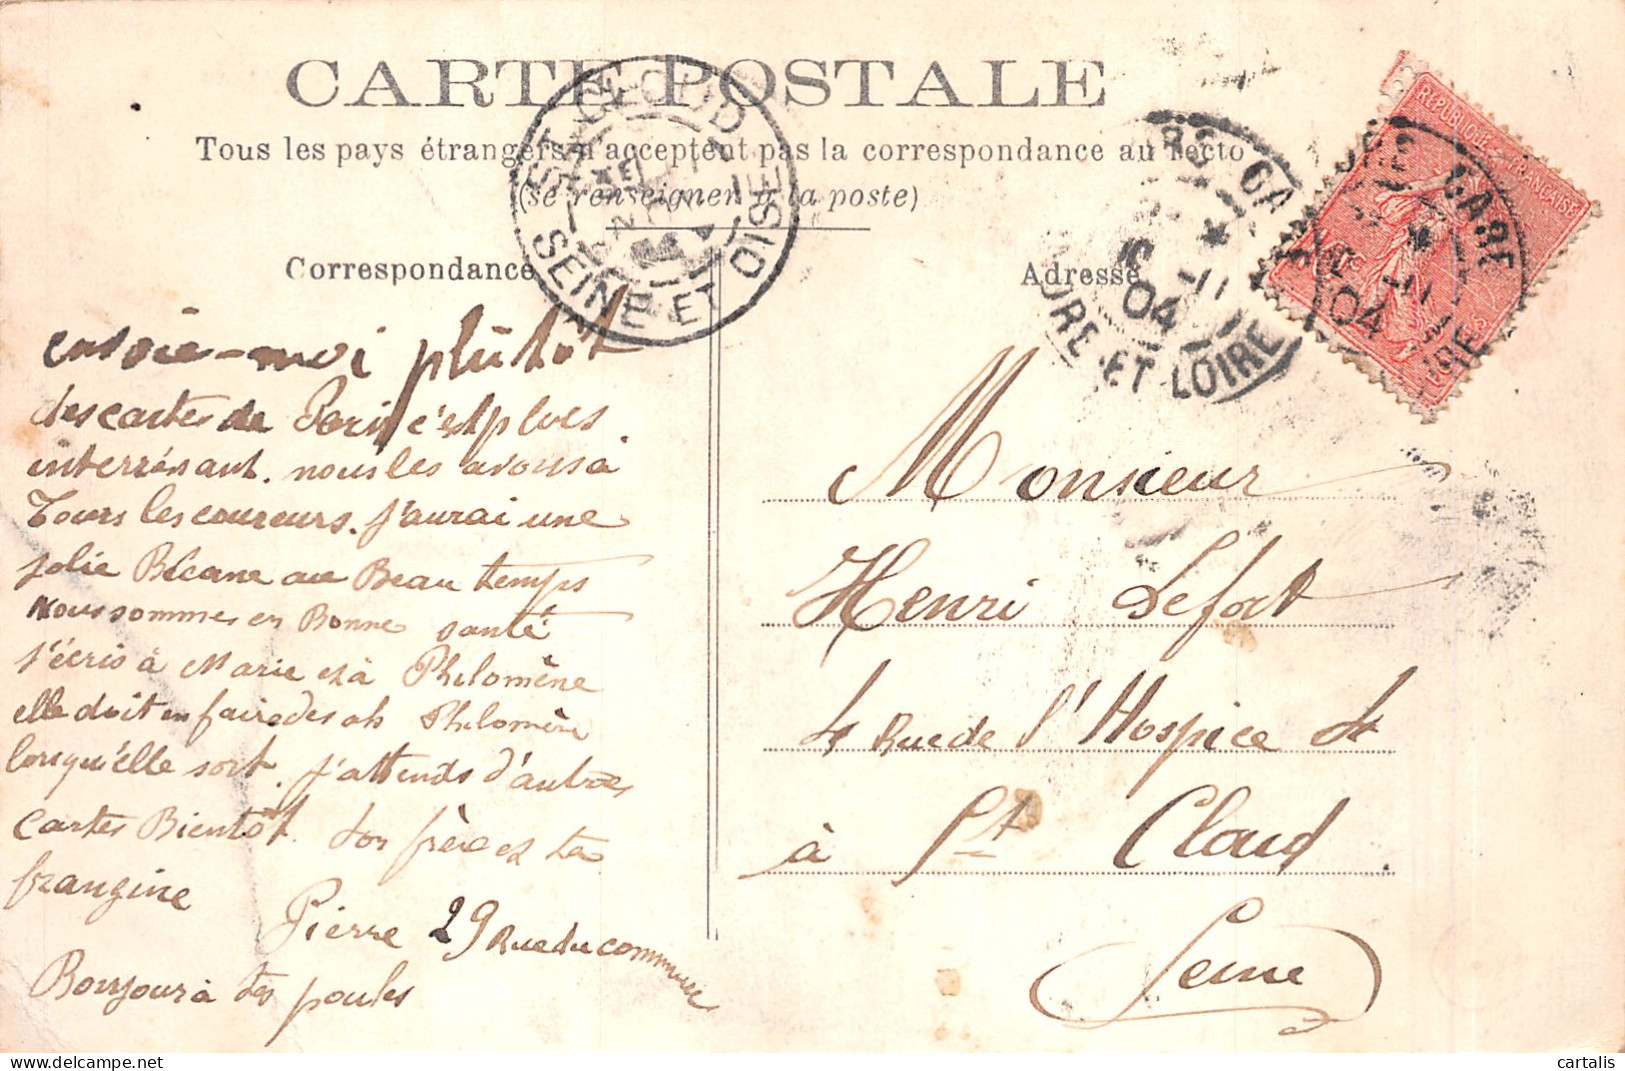 CARTE POSTALE
Tous les pays étrangers n'acceptent pas la correspondance au recto
(se renseigner à la poste)
Correspondance
Adresse
ST CLOUD
SEINE ET OISE
GARE
04
INDRE ET LOIRE
REPUBLIQUE FRANÇAISE
GARE
04
envoie-moi plûtot
des cartes de Paris c'est plus
interrésant. nous les avons à
Tours les coureurs. j'aurai une
jolie Bécane au Beau temps
nous sommes en Bonne santé
j'écris à Marie et à Philomène
elle doit en faire des ah Philomène
lorsqu'elle sort. j'attends d'autres
cartes Bientôt. ton frère et ta
frangine
Pierre 29 Rue du commerce
Bonjour à tes poules
Monsieur
Henri Lefort
4 Rue de l'Hospice 4
à St Cloud
Seine
cartalis